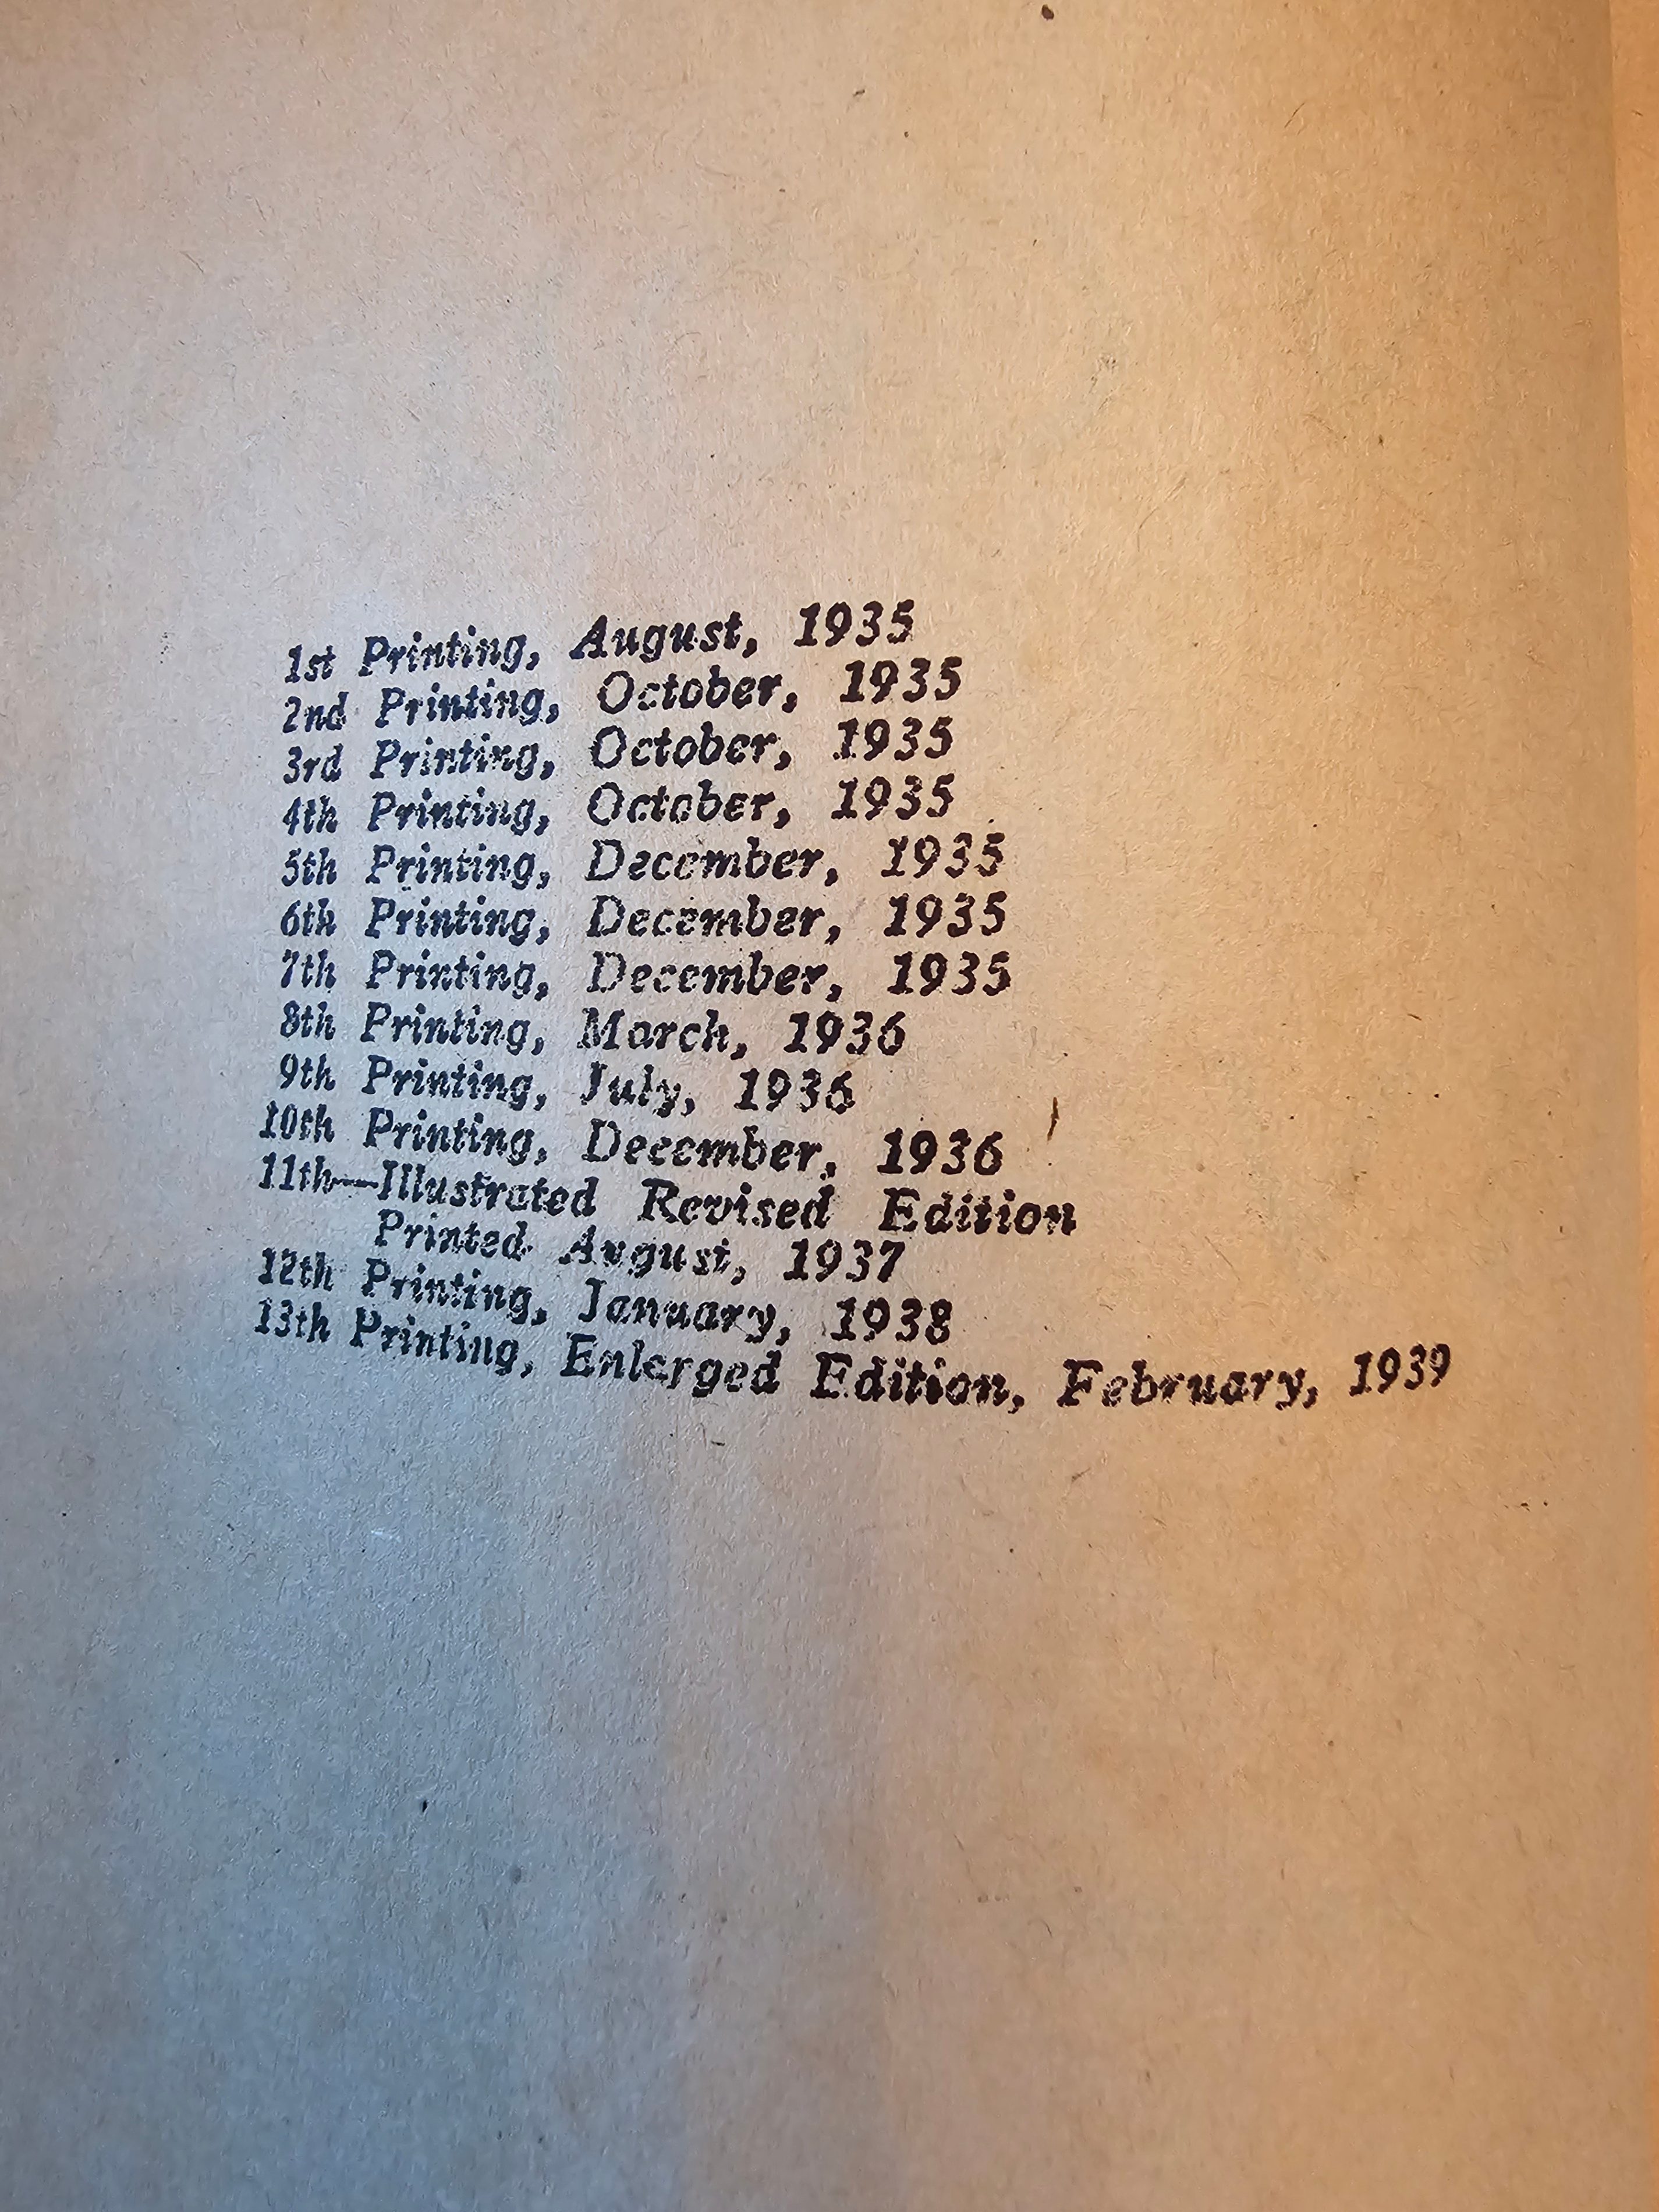 1st Printing, August, 1935
2nd Printing, October, 1935
3rd Printing, October, 1935
4th Printing, October, 1935
5th Printing, December, 1935
6th Printing, December, 1935
7th Printing, December, 1935
8th Printing, March, 1936
9th Printing, July, 1936
10th Printing, December, 1936
11th—Illustrated Revised Edition
Printed August, 1937
12th Printing, January, 1938
13th Printing, Enlarged Edition, February, 1939